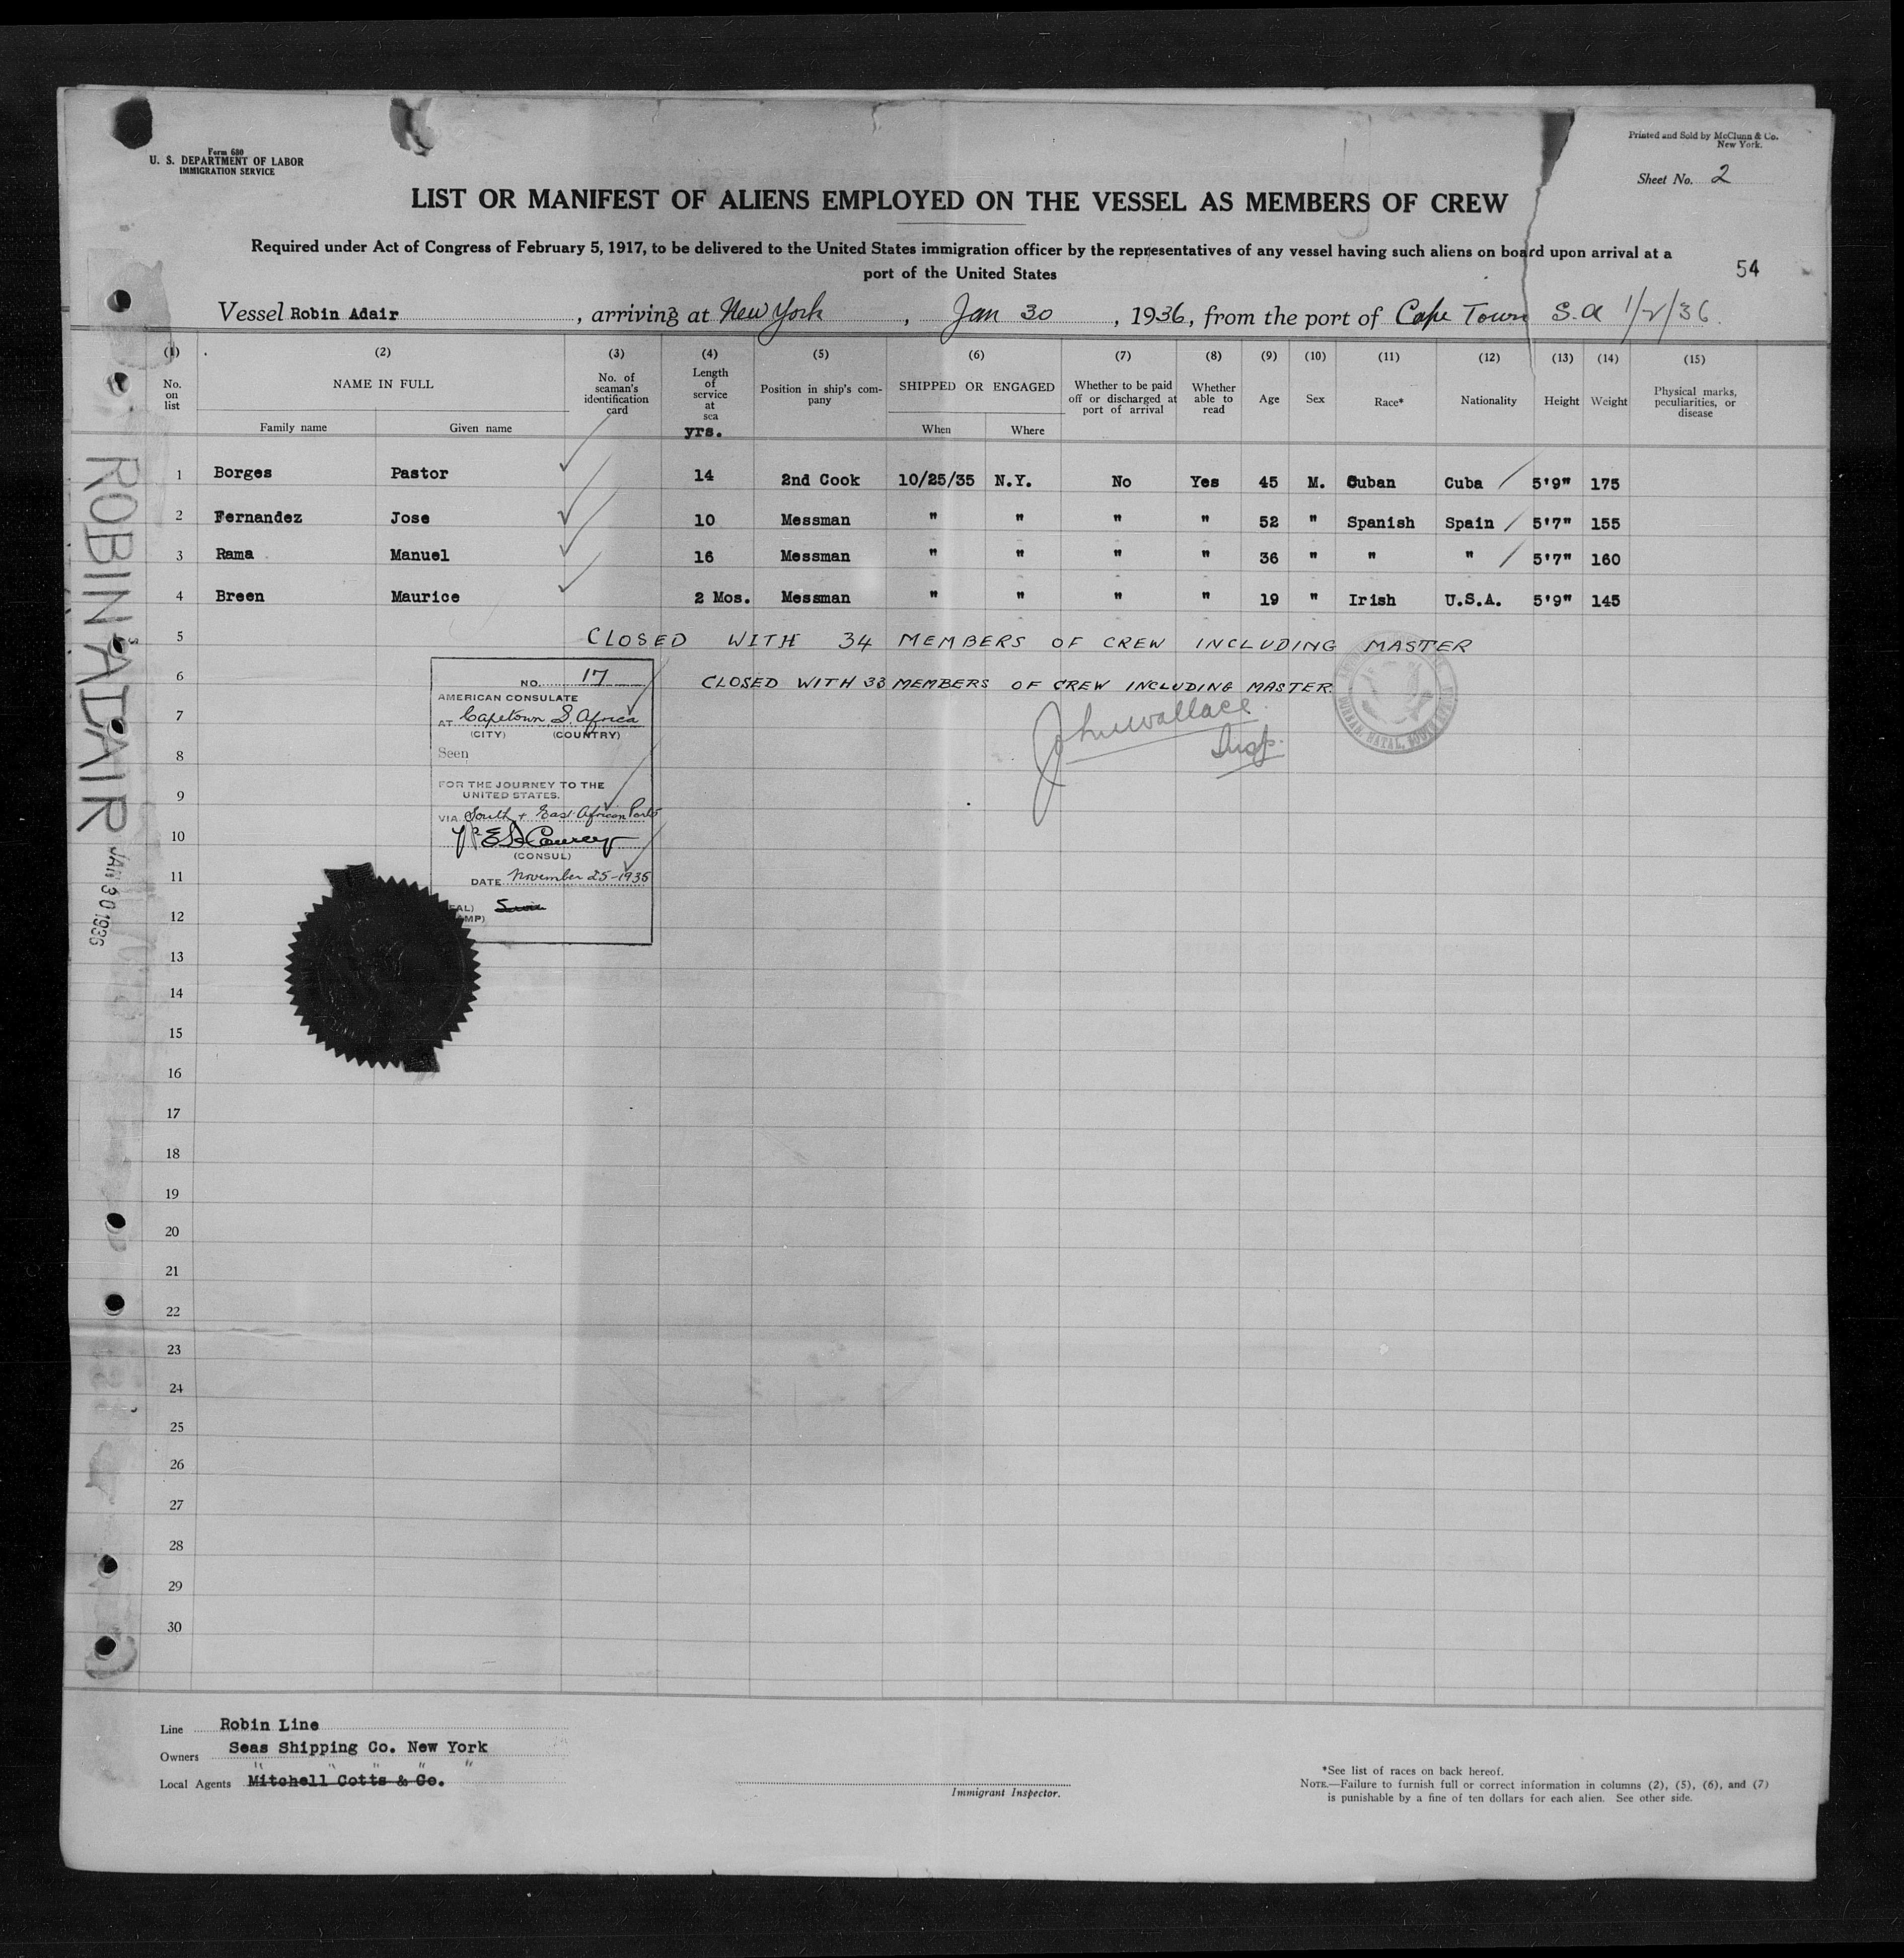 Form 680
U. S. DEPARTMENT OF LABOR
IMMIGRATION SERVICE
Printed and Sold by McClunn & Co.
New York.
Sheet No. 2
LIST OR MANIFEST OF ALIENS EMPLOYED ON THE VESSEL AS MEMBERS OF CREW
Required under Act of Congress of February 5, 1917, to be delivered to the United States immigration officer by the representatives of any vessel having such aliens on board upon arrival at a
port of the United States
54
Vessel Robin Adair, arriving at New York, Jan 30, 1936, from the port of Cape Town S.A 1/2/36
(1) (2) (3) (4) (5) (6) (7) (8) (9) (10) (11) (12) (13) (14) (15)
No. on list NAME IN FULL Family name Given name No. of seaman's identification card Length of service at sea yrs. Position in ship's company SHIPPED OR ENGAGED When Where Whether to be paid off or discharged at port of arrival Whether able to read Age Sex Race* Nationality Height Weight Physical marks, peculiarities, or disease
1 Borges Pastor 14 2nd Cook 10/25/35 N.Y. No Yes 45 M. Cuban Cuba 5'9" 175
2 Fernandez Jose 10 Messman " " " " 52 " Spanish Spain 5'7" 155
3 Rama Manuel 16 Messman " " " " 36 " " " 5'7" 160
4 Breen Maurice 2 Mos. Messman " " " " 19 " Irish U.S.A. 5'9" 145
5 CLOSED WITH 34 MEMBERS OF CREW INCLUDING MASTER
6 CLOSED WITH 33 MEMBERS OF CREW INCLUDING MASTER.
John Wallace
Insp.
NO. 17
AMERICAN CONSULATE
AT Capetown, S. Africa
(CITY) (COUNTRY)
Seen
FOR THE JOURNEY TO THE
UNITED STATES.
VIA South & East African Ports
(CONSUL)
DATE November 25-1935
7
8
9
10
11
12
13
14
15
16
17
18
19
20
21
22
23
24
25
26
27
28
29
30
ROBIN ADAIR
JAN 30 1936
Line Robin Line
Owners Seas Shipping Co. New York
" " " " "
Local Agents Mitchell Cotts & Co.
Immigrant Inspector.
*See list of races on back hereof.
NOTE.—Failure to furnish full or correct information in columns (2), (5), (6), and (7)
is punishable by a fine of ten dollars for each alien. See other side.